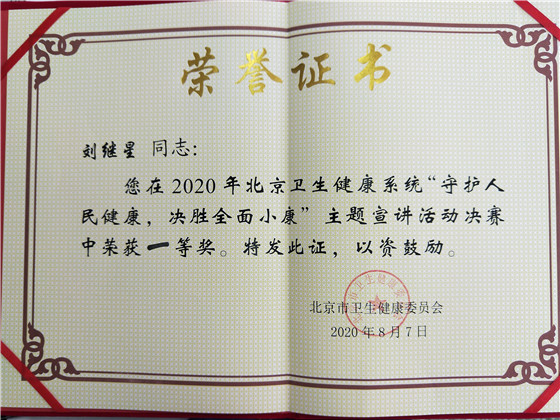 荣誉证书
刘继星 同志：
您在2020年北京卫生健康系统“守护人
民健康，决胜全面小康”主题宣讲活动决赛
中荣获一等奖。特发此证，以资鼓励。
北京市卫生健康委员会
2020年8月7日